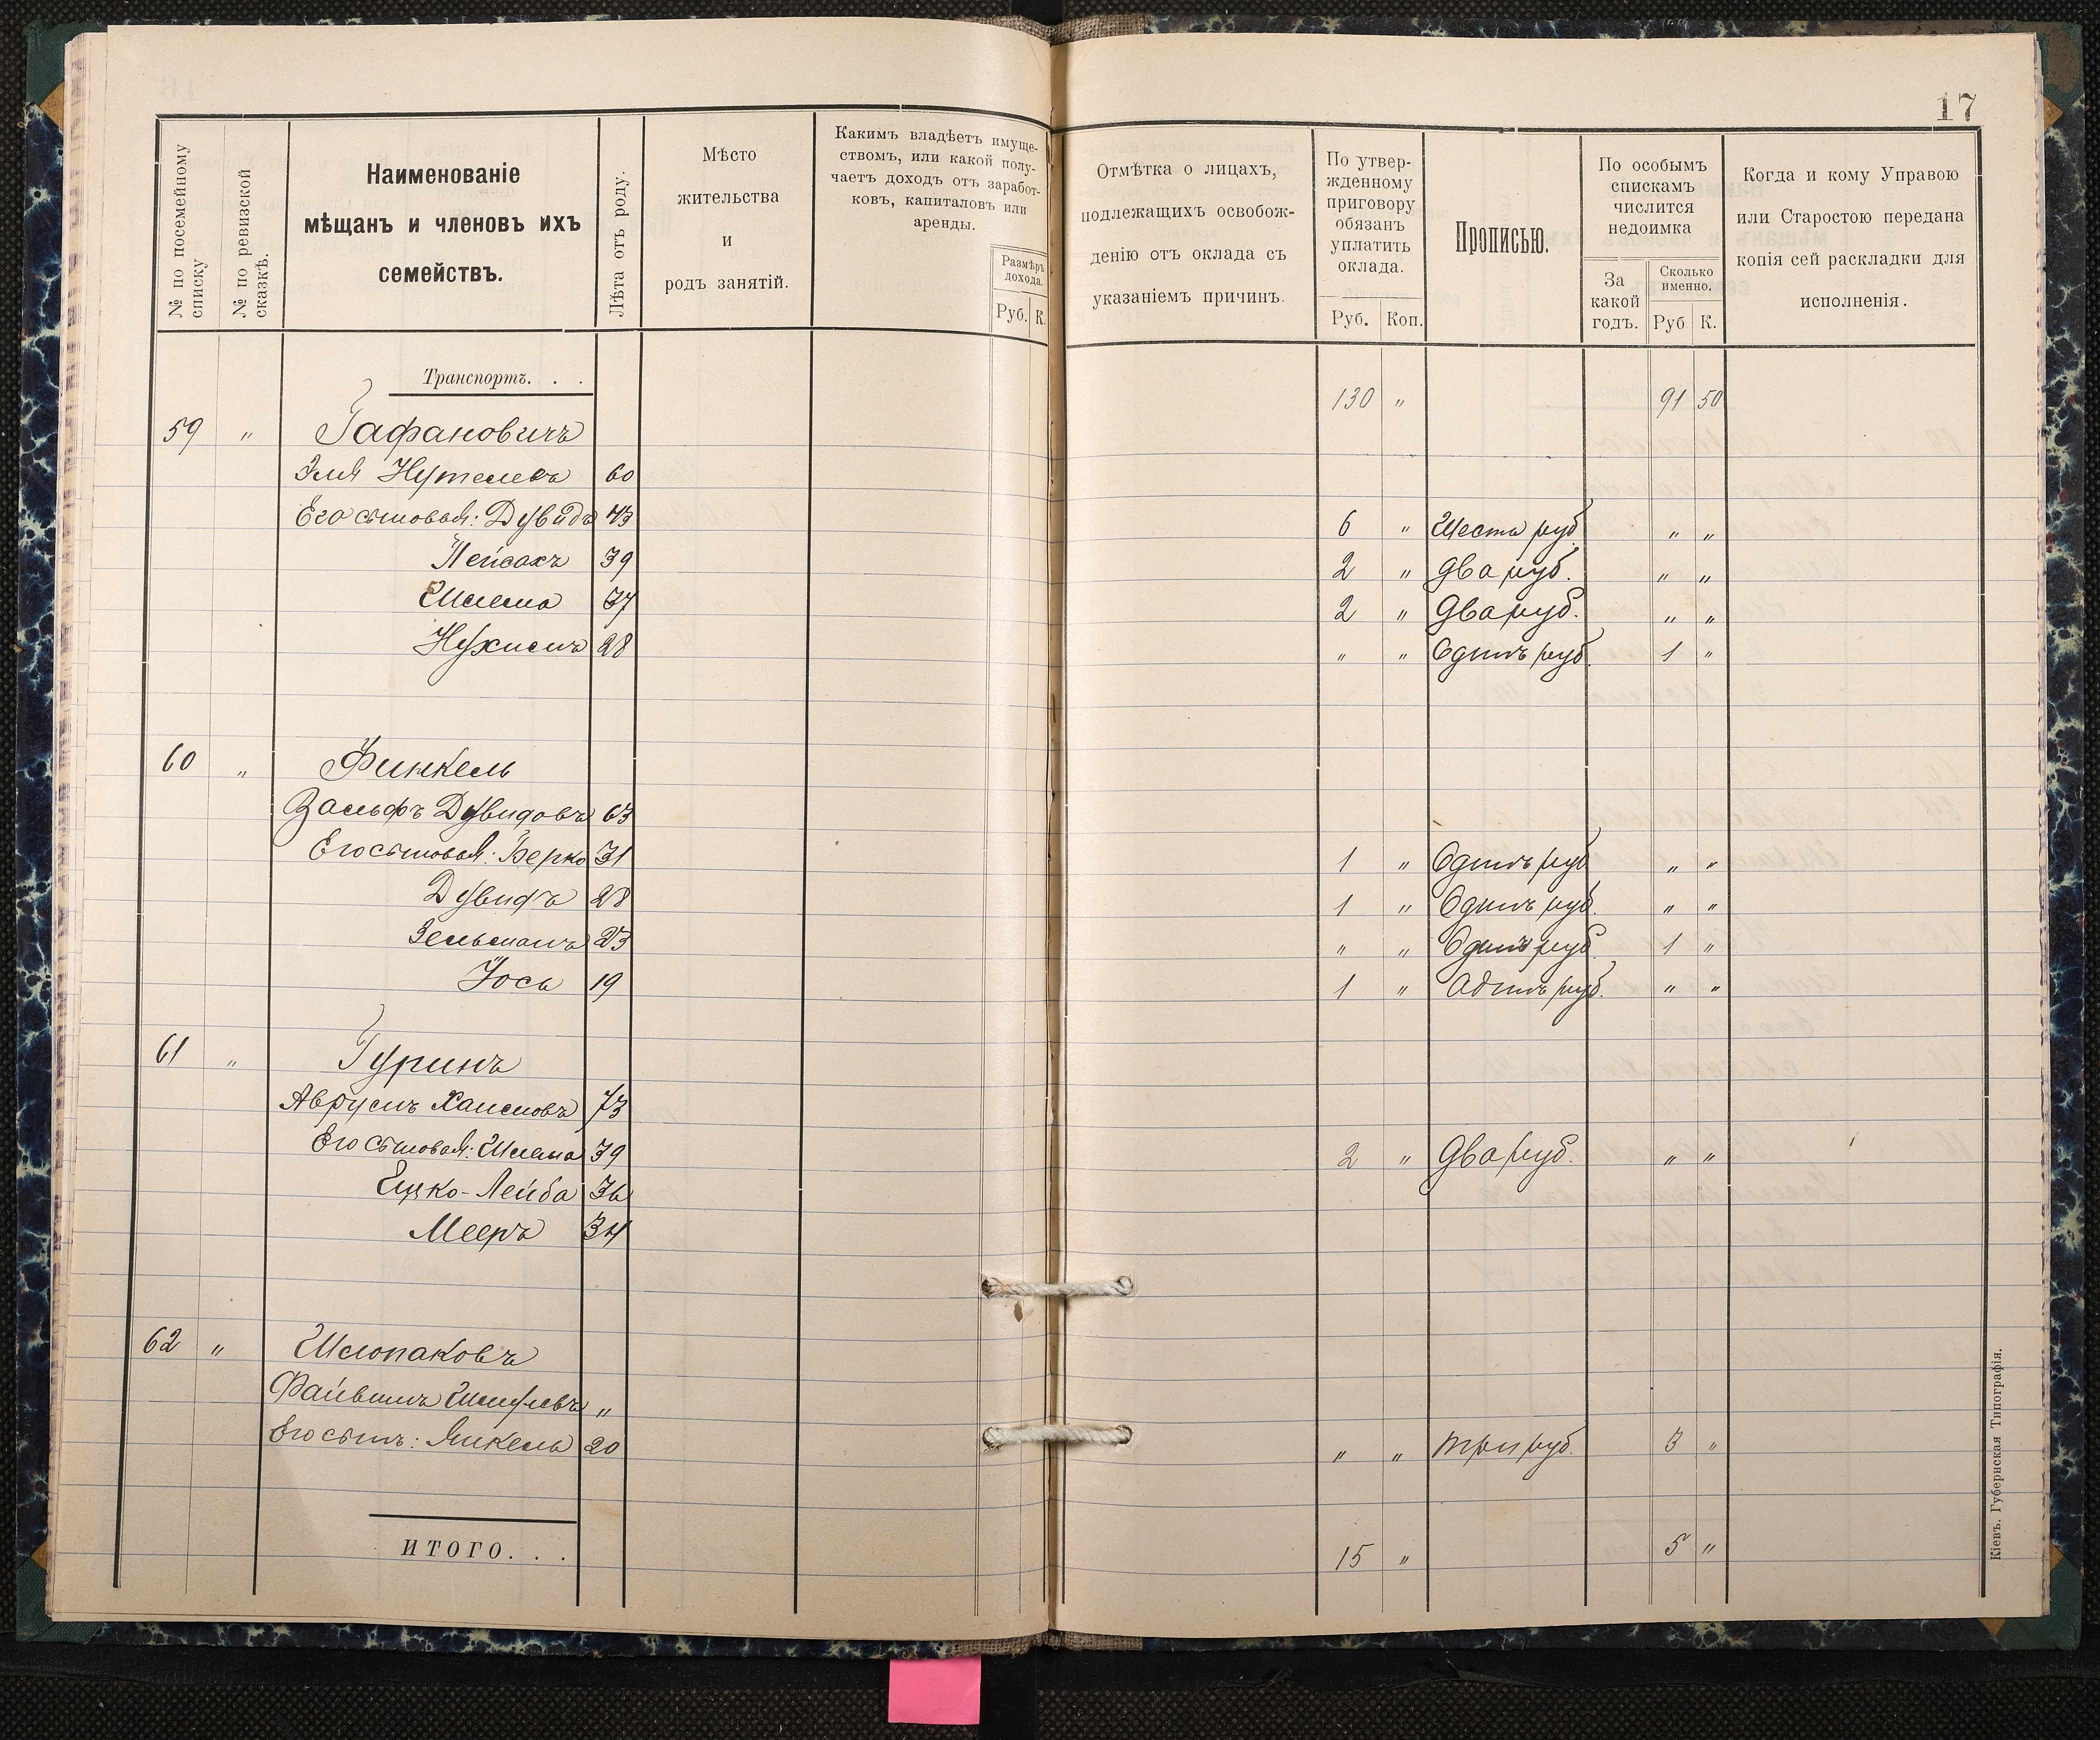 17
№ по посемейному списку
№ по ревизской сказкѣ.
Наименованіе
мѣщанъ и членовъ ихъ
семействъ.
Лѣта отъ роду.
Мѣсто
жительства
и
родъ занятій.
Какимъ владѣетъ имуще-
ствомъ, или какой полу-
чаетъ доходъ отъ заработ-
ковъ, капиталовъ или
аренды.
Размѣръ
дохода.
Руб. К.
Отмѣтка о лицахъ,
подлежащихъ освобож-
денію отъ оклада съ
указаніемъ причинъ.
По утвер-
жденному
приговору
обязанъ
уплатить
оклада.
Руб. Коп.
Прописью.
По особымъ
спискамъ
числится
недоимка
За
какой
годъ.
Сколько
именно.
Руб К.
Когда и кому Управою
или Старостою передана
копія сей раскладки для
исполненія.
Транспортъ. . . 130 " 91 50
59 " Гафановичъ
Эля Нутелевъ 60
Его сыновья: Дувидъ 43 6 " Шесть руб " "
Пейсахъ 39 2 " Два руб. " "
Шлема 37 2 " Два руб. " "
Нухимъ 28 " " Одинъ руб. 1 "
60 " Финкель
Вольфъ Дувидовъ 63
Его сыновья: Берко 31 1 " Одинъ руб " "
Дувидъ 28 1 " Одинъ руб. " "
Зельманъ 23 " " Одинъ руб. 1 "
Іось 19 1 " Одинъ руб. " "
61 " Гуринъ
Аврумъ Хаимовъ 73
Его сыновья: Шлема 39 2 " Два руб. " "
Ицко-Лейба 36
Мееръ 34
62 " Шлопаковъ
Файвишъ Шмулевъ "
Его сынъ: Янкель 20 " " три руб. 3 "
ИТОГО. . . 15 " 5 "
Кіевъ. Губернская Типографія.